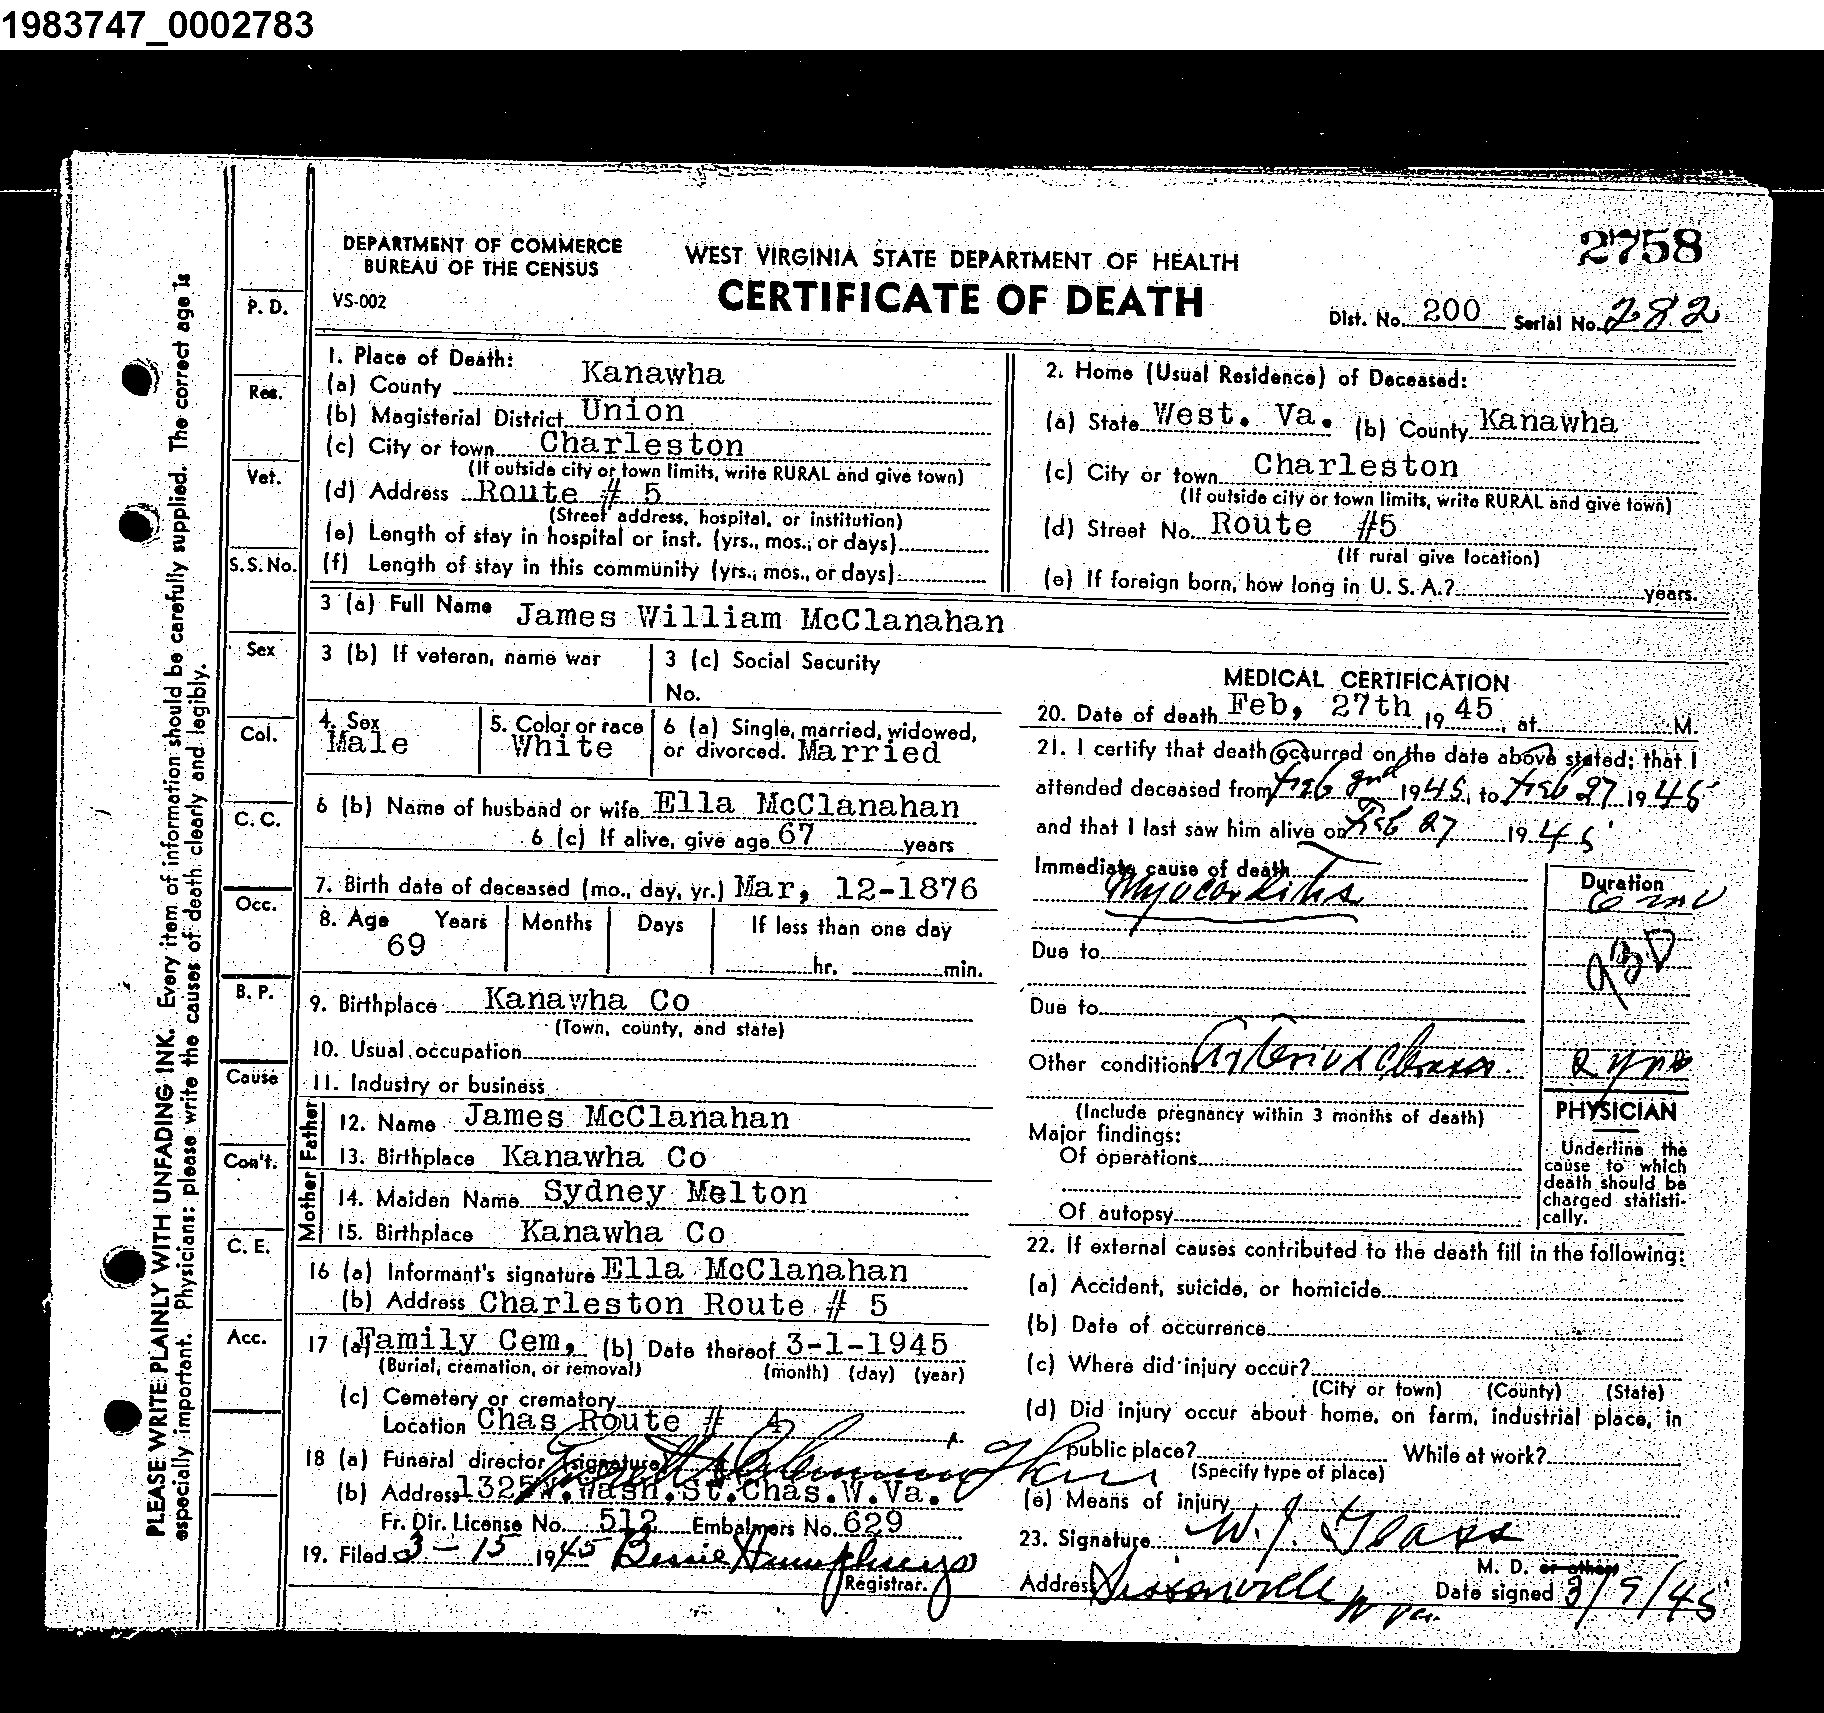 1983747_0002783
DEPARTMENT OF COMMERCE
BUREAU OF THE CENSUS
VS-002
WEST VIRGINIA STATE DEPARTMENT OF HEALTH
CERTIFICATE OF DEATH
2758
Dist. No. 200 Serial No. 282
PLEASE WRITE PLAINLY WITH UNFADING INK. Every item of information should be carefully supplied. The correct age is
especially important. Physicians: please write the causes of death clearly and legibly.
P. D.
Res.
Vet.
S.S. No.
Sex
Col.
C. C.
Occ.
B. P.
Cause
Con't.
C. E.
Acc.
1. Place of Death:
(a) County Kanawha
(b) Magisterial District Union
(c) City or town Charleston
(If outside city or town limits, write RURAL and give town)
(d) Address Route # 5
(Street address, hospital, or institution)
(e) Length of stay in hospital or inst. (yrs., mos., or days)
(f) Length of stay in this community (yrs., mos., or days)
2. Home (Usual Residence) of Deceased:
(a) State West. Va. (b) County Kanawha
(c) City or town Charleston
(If outside city or town limits, write RURAL and give town)
(d) Street No. Route #5
(If rural give location)
(e) If foreign born, how long in U. S. A.? years.
3 (a) Full Name James William McClanahan
3 (b) If veteran, name war
3 (c) Social Security
No.
4. Sex Male
5. Color or race White
6 (a) Single, married, widowed,
or divorced. Married
6 (b) Name of husband or wife Ella McClanahan
6 (c) If alive, give age 67 years
7. Birth date of deceased (mo., day, yr.) Mar, 12-1876
8. Age Years Months Days If less than one day
69 hr. min.
9. Birthplace Kanawha Co
(Town, county, and state)
10. Usual occupation
11. Industry or business
Father
12. Name James McClanahan
13. Birthplace Kanawha Co
Mother
14. Maiden Name Sydney Melton
15. Birthplace Kanawha Co
16 (a) Informant's signature Ella McClanahan
(b) Address Charleston Route # 5
17 (a) Family Cem, (b) Date thereof 3-1-1945
(Burial, cremation, or removal) (month) (day) (year)
(c) Cemetery or crematory
Location Chas Route # 4
18 (a) Funeral director signature
(b) Address 1325 W. Wash. St. Chas. W. Va.
Fr. Dir. License No. 512 Embalmers No. 629
19. Filed 3-15 1945 Bessie Humphreys
Registrar.
MEDICAL CERTIFICATION
20. Date of death Feb, 27th 19 45, at M.
21. I certify that death occurred on the date above stated; that I
attended deceased from Feb 2nd 1945, to Feb 27 1945
and that I last saw him alive on Feb 27 1945
Immediate cause of death
Myocarditis
Duration
Due to
Due to
Other conditions Arteriosclerosis 2 yrs
(Include pregnancy within 3 months of death)
Major findings:
Of operations
Of autopsy
PHYSICIAN
Underline the
cause to which
death should be
charged statisti-
cally.
22. If external causes contributed to the death fill in the following:
(a) Accident, suicide, or homicide
(b) Date of occurrence
(c) Where did injury occur?
(City or town) (County) (State)
(d) Did injury occur about home, on farm, industrial place, in
public place? While at work?
(Specify type of place)
(e) Means of injury
23. Signature W. J. Glass
M. D. or other
Address Sissonville W Va. Date signed 3/9/45